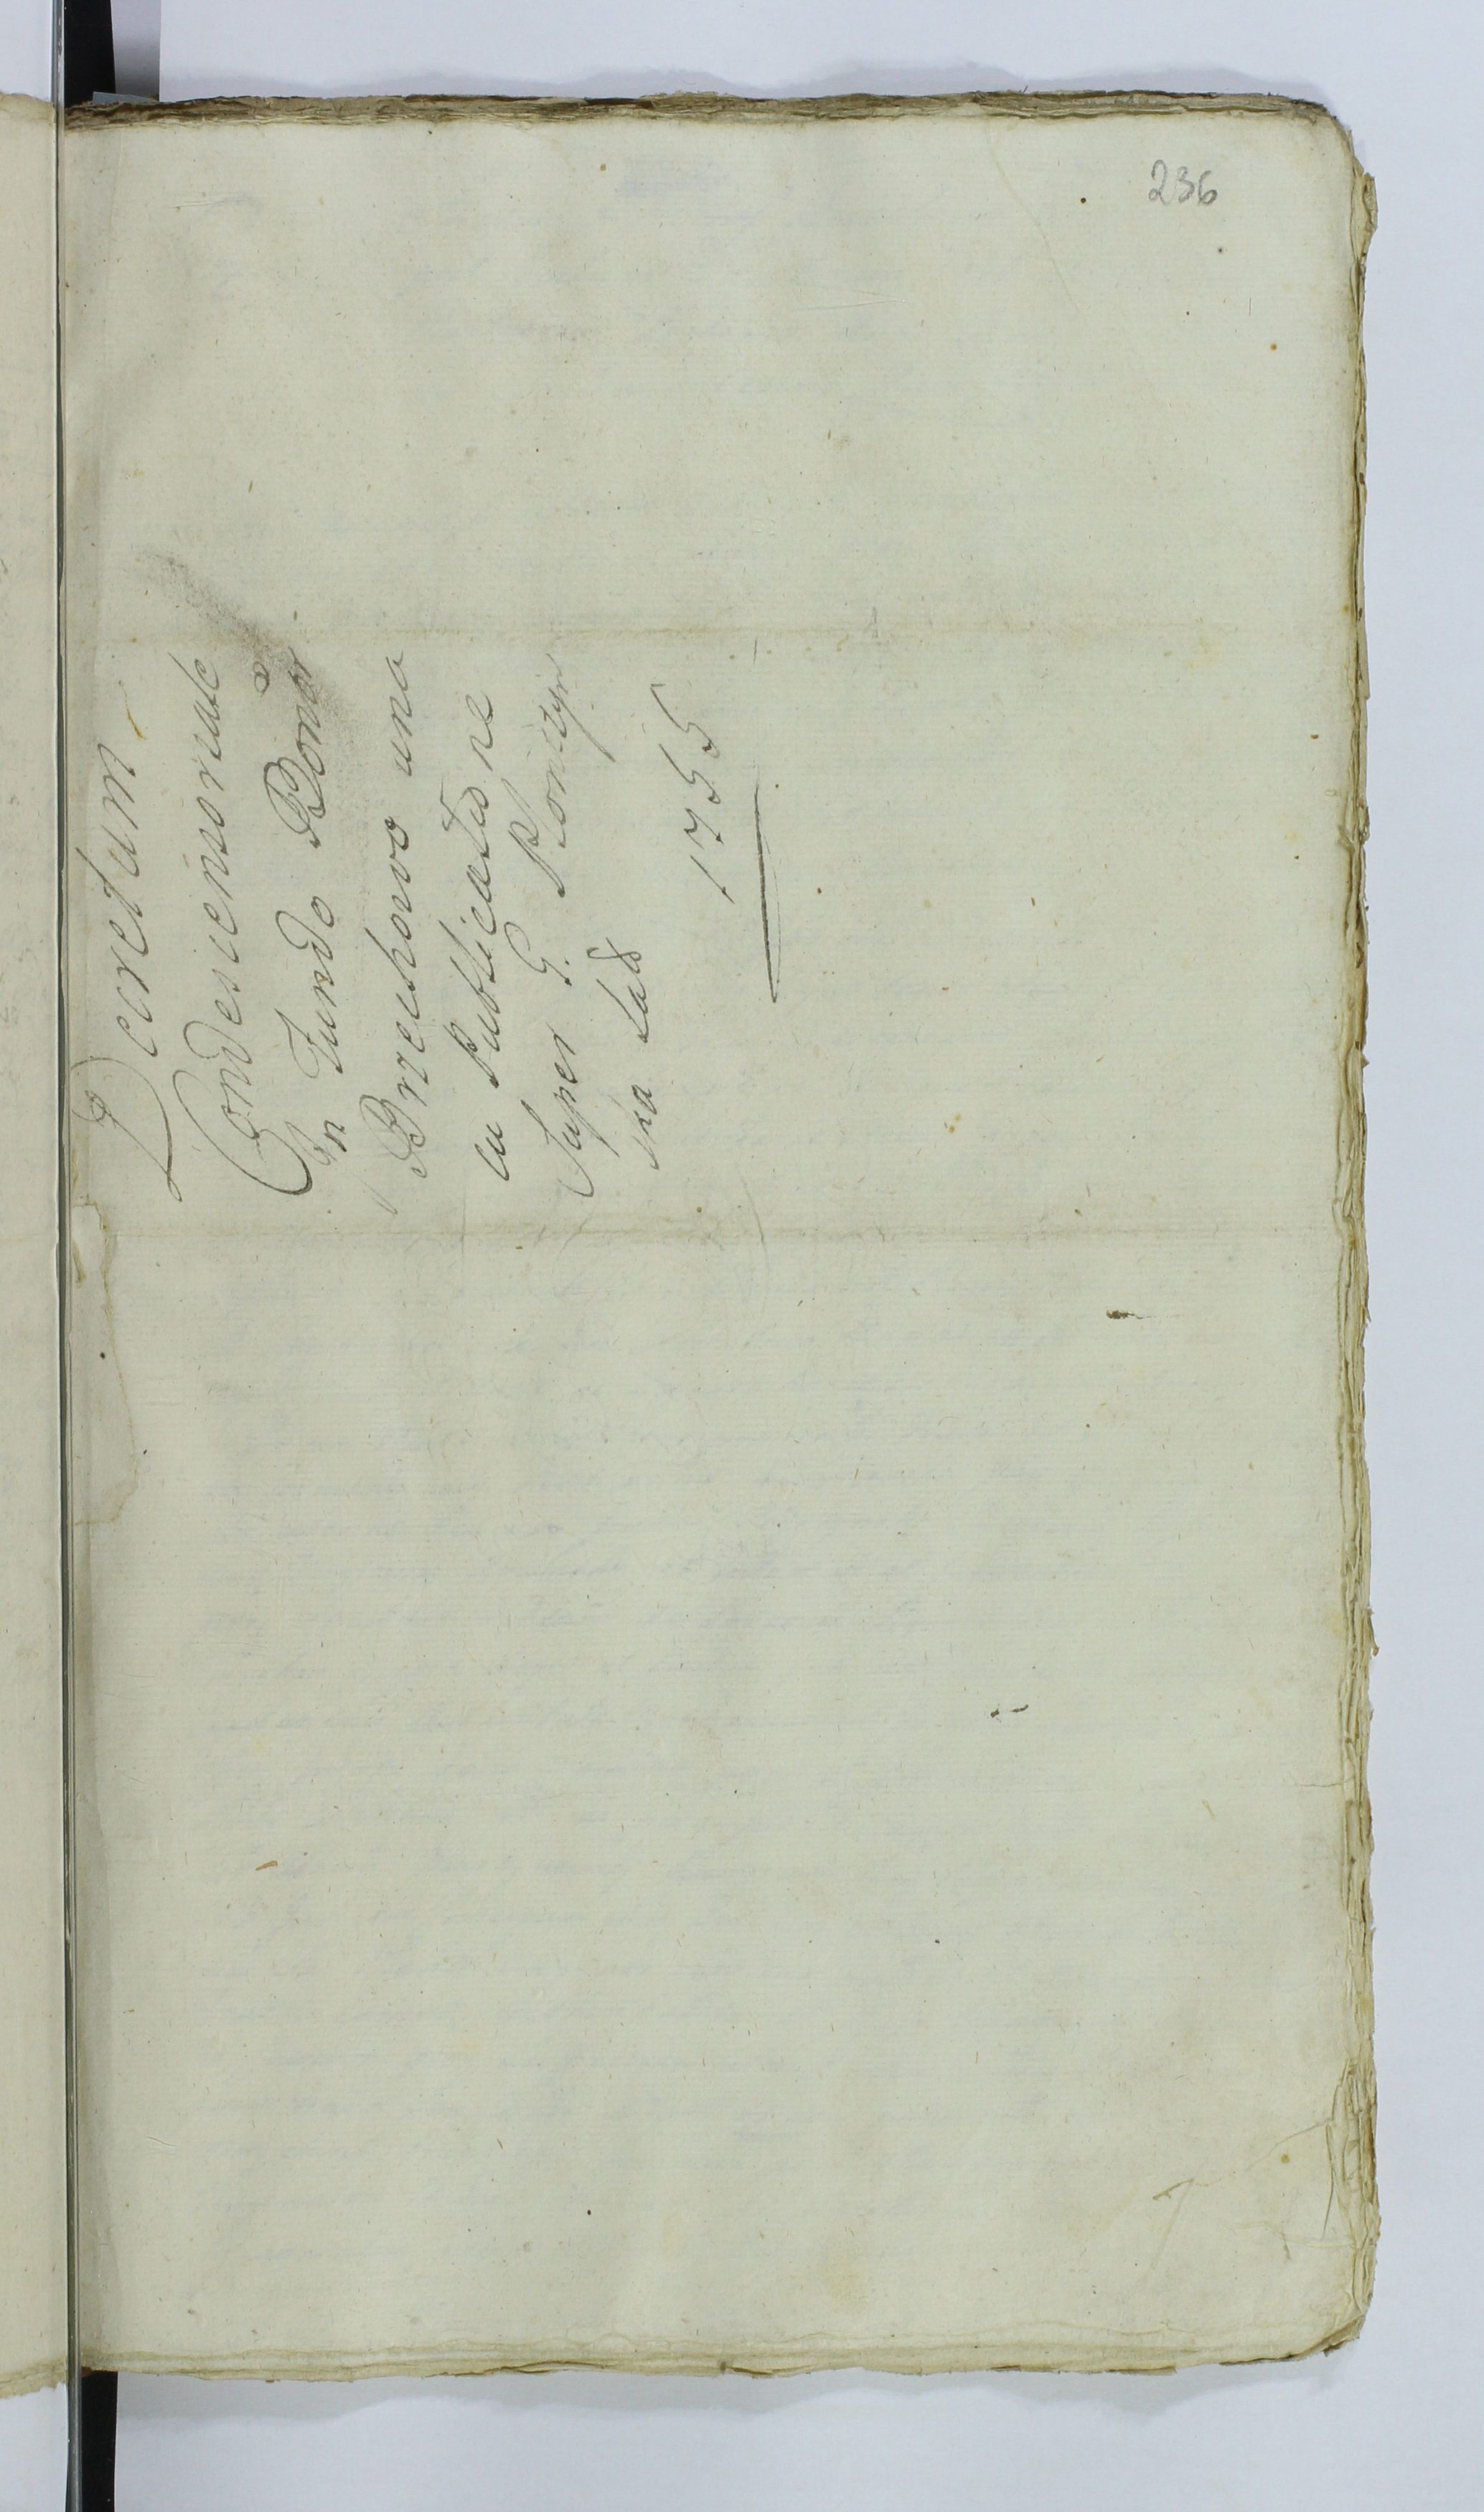 236
Decretum
Condescensoriale
In Fundo Bonor
Brzechowo una
cu Publicatione
Super G.
ska
1755